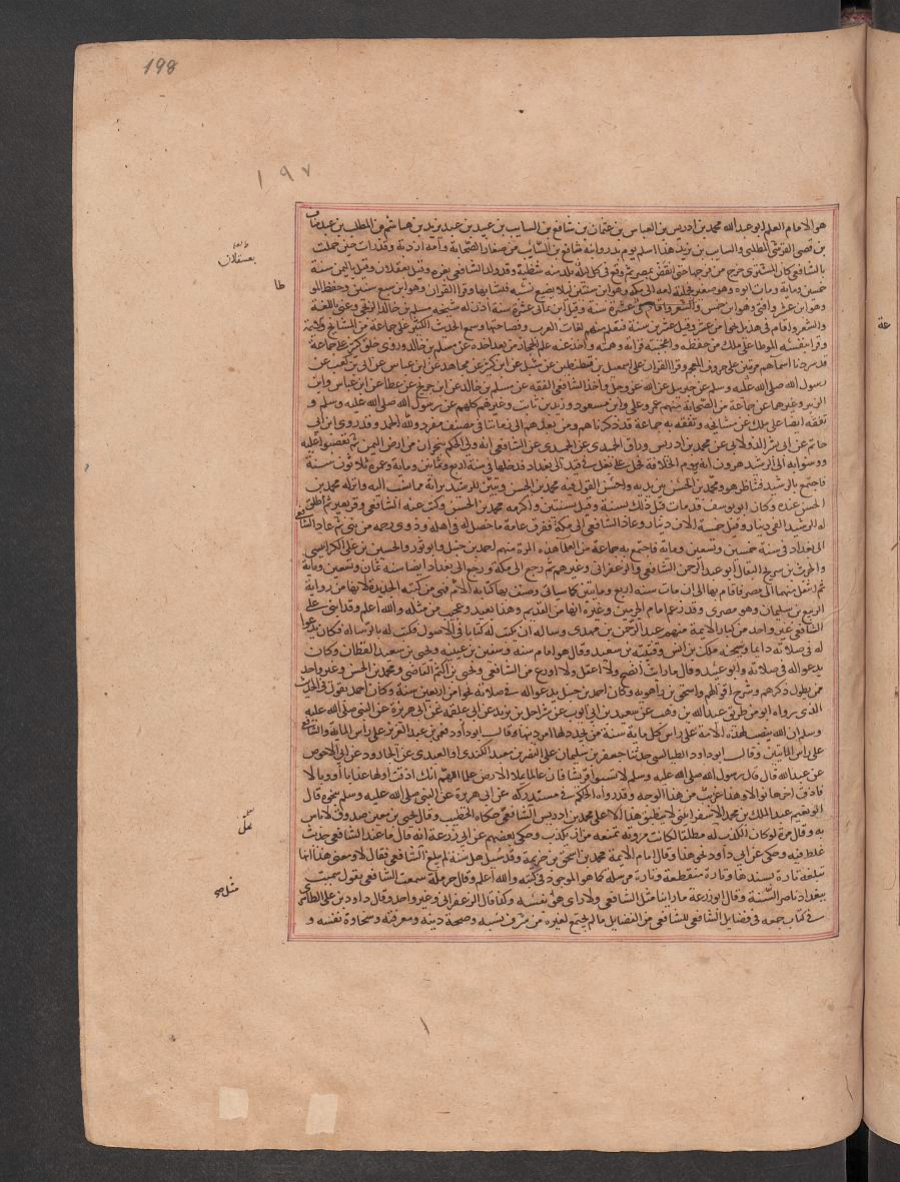 198
١٩٧
هو الامام العلم ابو عبد الله محمد بن ادريس بن العباس بن عثمان بن شافع بن السايب بن عبيد بن عبد يزيد بن هاشم بن المطلب بن عبد مناف
بن قصي القرشي المطلبي والسايب بن يزيد هذا اسلم يوم بدر وابنه شافع بن السايب من صغار الصحابة وامه ازدية وقد رات حين حملت
بعسقلان
بالشافعي كان المشتري خرج من فرجها حتى انقض بمصر ثم وقع في كل بلد منه شظية وقد ولد الشافعي بغزة وقيل بعسقلان وقيل باليمن سنة
خمسين وماية ومات ابوه وهو صغير فحملته امه الى مكة وهو ابن سنتين ليلا يضيع نسبه فنشا بها وقرا القران وهو ابن سبع سنين وحفظ الموطا
وهو ابن عشر وافتى وهو ابن خمس عشرة سنة وقيل ابن ثماني عشرة سنة اذن له شيخه مسلم بن خالد الزنجي وعني باللغة
والشعر واقام في هذيل نحوا من عشر وقيل عشرين سنة فتعلم منهم لغات العرب وفصاحتها وسمع الحديث الكثير على جماعة من المشايخ والايمة
وقرا بنفسه الموطا على ملك من حفظه واعجبته قراته وهمته واخذ عنه علم الحجاز بعد اخذه عن مسلم بن خالد وروى خلق كثير على جماعة
قد سردنا اسماهم مرتبين على حروف المعجم وقرا القران على اسمعيل بن قسطنطين عن شبل عن ابن كثير عن مجاهد عن ابن عباس عن ابي بن كعب عن
رسول الله صلى الله عليه وسلم عن جبريل عن الله عز وجل واخذ الشافعي الفقه عن مسلم بن خالد عن ابن جريج عن عطا عن ابن عباس وابن
الزبير وغيرهما عن جماعة من الصحابة منهم عمر وعلي وابن مسعود وزيد بن ثابت وغيرهم كلهم عن رسول الله صلى الله عليه وسلم و
تفقه ايضا على ملك عن مشايخه وتفقه به جماعة قد ذكرناهم ومن بعدهم الى زماننا في مصنف مفرد ولله الحمد وقد روى ابن ابي
حاتم عن ابي بشر الدولابي عن محمد بن ادريس وراق الحميدي عن الحميدي عن الشافعي انه ولي الحكم بنجران من ارض اليمن ثم تعصبوا عليه
ووشوا به الى الرشيد هرون انه يروم الخلافة فحمل على بغل في قيد الى بغداد فدخلها في سنة اربع وثمانين وماية وعمره ثلاثون سنة
فاجتمع بالرشيد فتناظر هو ومحمد بن الحسن بين يديه واحسن القول فيه محمد بن الحسن وتبين للرشيد براته مما نسب اليه وانزله محمد بن
الحسن عنده وكان ابو يوسف قد مات قبل ذلك بسنة وقيل بسنتين واكرمه محمد بن الحسن وكتب عنه الشافعي وقر بعير ثم اطلق
له الرشيد الفي دينار وقيل خمسة الاف دينار وعاد الشافعي الى مكة ففرق عامة ما حصل له في اهله وذوي رحمه من بني عمه ثم عاد الشافعي
الى بغداد في سنة خمس وتسعين وماية فاجتمع به جماعة من العلما هذه المرة منهم احمد بن حنبل وابو ثور والحسين بن علي الكرابيسي
والحرث بن سريج البقال وابو عبد الرحمن الشافعي والزعفراني وغيرهم ثم رجع الى مكة ورجع الى بغداد ايضا سنة ثمان وتسعين وماية
ثم انتقل منها الى مصر فاقام بها الى ان مات سنة اربع ومايتين كما سياتي وصنف بها كتابه الام فهو من كتبه الجديدة لانها من رواية
الربيع بن سليمان وهو مصري وقد زعم امام الحرمين وغيره انها من القديم وهذا بعيد وعجيب من مثله والله اعلم وقد اثنى على
الشافعي غير واحد من كبار الايمة منهم عبد الرحمن بن مهدي وساله ان يكتب له كتابا في الاصول فكتب له الرسالة فكان يدعوا
له في صلاته دايما وشيخه ملك بن انس وقتيبة بن سعيد وقال هو امام سنة وسفين بن عيينة ويحيى بن سعيد القطان وكان
يدعو له في صلاته وابو عبيد وقال ما رايت افصح ولا اعقل ولا اورع من الشافعي ويحيى بن اكثم القاضي ومحمد بن الحسن وغير واحد
ممن يطول ذكرهم وشرح اقوالهم واسحق بن راهويه وكان احمد بن حنبل يدعو له في صلاته نحوا من اربعين سنة وكان احمد يقول في الحديث
الذي رواه ابو من طريق عبد الله بن وهب عن سعيد بن ابي ايوب عن شراحيل بن يزيد عن ابي علقمة عن ابي هريرة عن النبي صلى الله عليه
وسلم ان الله يبعث لهذه الامة على راس كل ماية سنة من يجدد لها امر دينها وقال ابو داود فعمر بن عبد العزيز على راس الماية والشافعي
على راس المايتين وقال ابو داود الطيالسي حدثنا جعفر بن سليمان عن النضر بن معبد الكندي او العبدي عن الجارود عن ابي الاحوص
عن عبد الله قال قال رسول الله صلى الله عليه وسلم لا تسبوا قريشا فان عالمها يملا الارض علما اللهم انك اذقت اولها عذابا ووبالا
فاذق اخرها نوالا وهذا غريب من هذا الوجه وقد رواه الحاكم في مستدركه عن ابي هريرة عن النبي صلى الله عليه وسلم بنحوه قال
ابو نعيم عبد الملك بن محمد الاسفرايني لا ينطبق هذا الا على محمد بن ادريس الشافعي حكاه الخطيب وقال يحيى بن معين صدوق لا باس
به وقال مرة لو كان الكذب له مطلقا لكانت مروته تمنعه من ان يكذب وحكى بعضهم عن ابي زرعة انه قال ما عند الشافعي حديث
غلط فيه وحكي عن ابي داود نحو هذا وقال امام الايمة محمد بن اسحق بن خزيمة وقد سئل هل سنة لم تبلغ الشافعي فقال لا ومعنى هذا انها
تبلغه تارة بسندها وتارة منقطعة وتارة مرسلة كما هو الموجود في كتبه والله اعلم وقال حرملة سمعت الشافعي يقول سميت
ببغداد ناصر السنة وقال ابو زرعة ما راينا مثل الشافعي ولا راى هو مثل نفسه وكذا قال الزعفراني وغير واحد وقال داود بن علي الظاهري
في كتاب جمعه في فضايل الشافعي للشافعي من الفضايل ما لم يجتمع لغيره من شرف نسبه وصحة دينه ومعرفته وسخاوة نفسه و